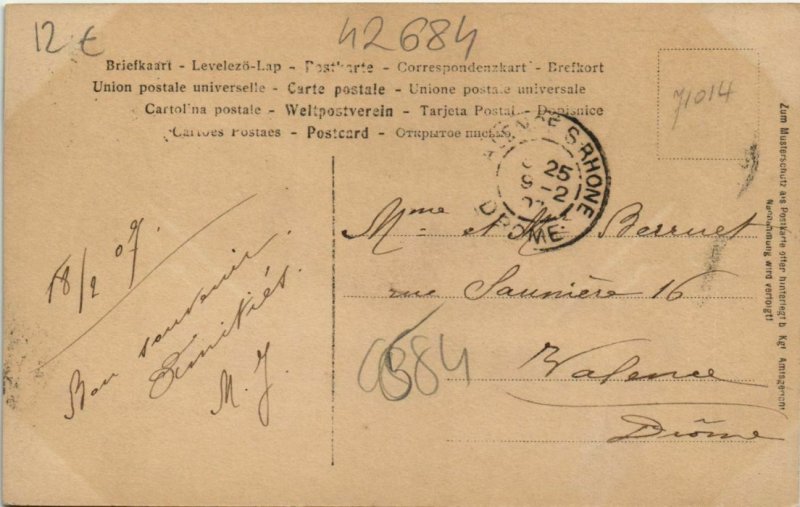 12 €
42684
Briefkaart - Levelezö-Lap - Postkarte - Correspondenzkart - Brefkort
Union postale universelle - Carte postale - Unione postale universale
Cartolina postale - Weltpostverein - Tarjeta Postal - Dopisnice
Cartões Postaes - Postcard - Открытое письмо
71014
S RHONE
25
9-2
DROME
Zum Musterschutz als Postkarte offen hinterlegt b. Kgl. Amtsgericht
Nachahmung wird verfolgt!
18/2 07.
Bon souvenir.
Amitiés.
M. J.
Mme et Mr Berruet
rue Saunière 16
Valence
Drôme
684